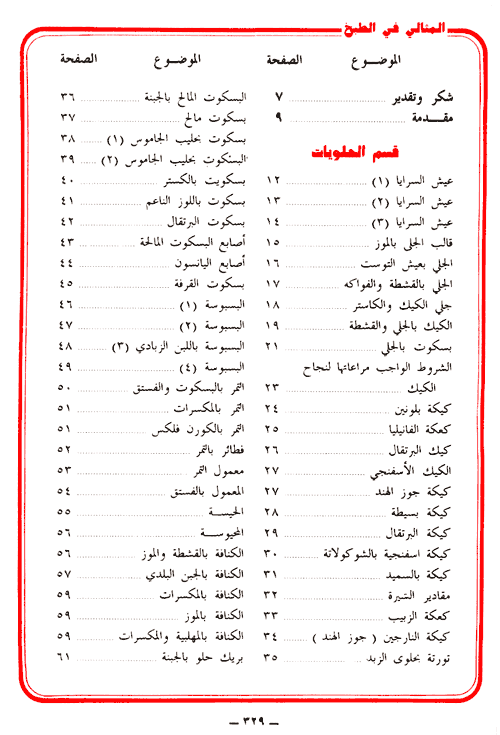 المثالي في الطبخ
الموضـوع الصفحة
شكر وتقدير ٧
مقـدمة ٩
قسم الحلويات
عيش السرايا (١) ١٢
عيش السرايا (٢) ١٣
عيش السرايا (٣) ١٤
قالب الجلي بالموز ١٥
الجلي بعيش التوست ١٦
الجلي بالقشطة والفواكه ١٧
جلي الكيك والكاستر ١٨
الكيك بالجلي والقشطة ١٩
بسكوت بالجلي ٢١
الشروط الواجب مراعاتها لنجاح
الكيك ٢٣
كيكة بلونين ٢٤
كعكة الفانيليا ٢٥
كيك البرتقال ٢٦
الكيك الأسفنجي ٢٧
كيكة جوز الهند ٢٧
كيكة بسيطة ٢٨
كيكة البرتقال ٢٩
كيكة اسفنجية بالشوكولاتة ٣٠
كيكة بالسميد ٣١
مقادير الشيرة ٣٢
كعكة الزبيب ٣٣
كيكة النارجين ( جوز الهند ) ٣٤
تورتة بحلوى الزبد ٣٥
الموضـوع الصفحة
البسكوت المالح بالجبنة ٣٦
بسكوت مالح ٣٧
بسكوت بحليب الجاموس (١) ٣٨
البسكوت بحليب الجاموس (٢) ٣٩
بسكويت بالكستر ٤٠
بسكوت باللوز الناعم ٤١
بسكوت البرتقال ٤٢
أصابع البسكوت المالحة ٤٣
أصابع اليانسون ٤٤
بسكوت القرفة ٤٥
البسبوسة (١) ٤٦
البسبوسة (٢) ٤٧
البسبوسة باللبن الزبادي (٣) ٤٨
البسبوسة (٤) ٤٩
التمر بالبسكوت والفستق ٥٠
التمر بالمكسرات ٥١
التمر بالكورن فلكس ٥١
فطائر بالتمر ٥٢
معمول التمر ٥٣
المعمول بالفستق ٥٤
الحيسـة ٥٥
المحيوسـة ٥٦
الكنافة بالقشطة والموز ٥٦
الكنافة بالجبن البلدي ٥٧
الكنافة بالمكسرات ٥٩
الكنافة بالموز ٥٩
الكنافة بالمهلبية والمكسرات ٥٩
بريك حلو بالجبنة ٦١
— ٣٢٩ —